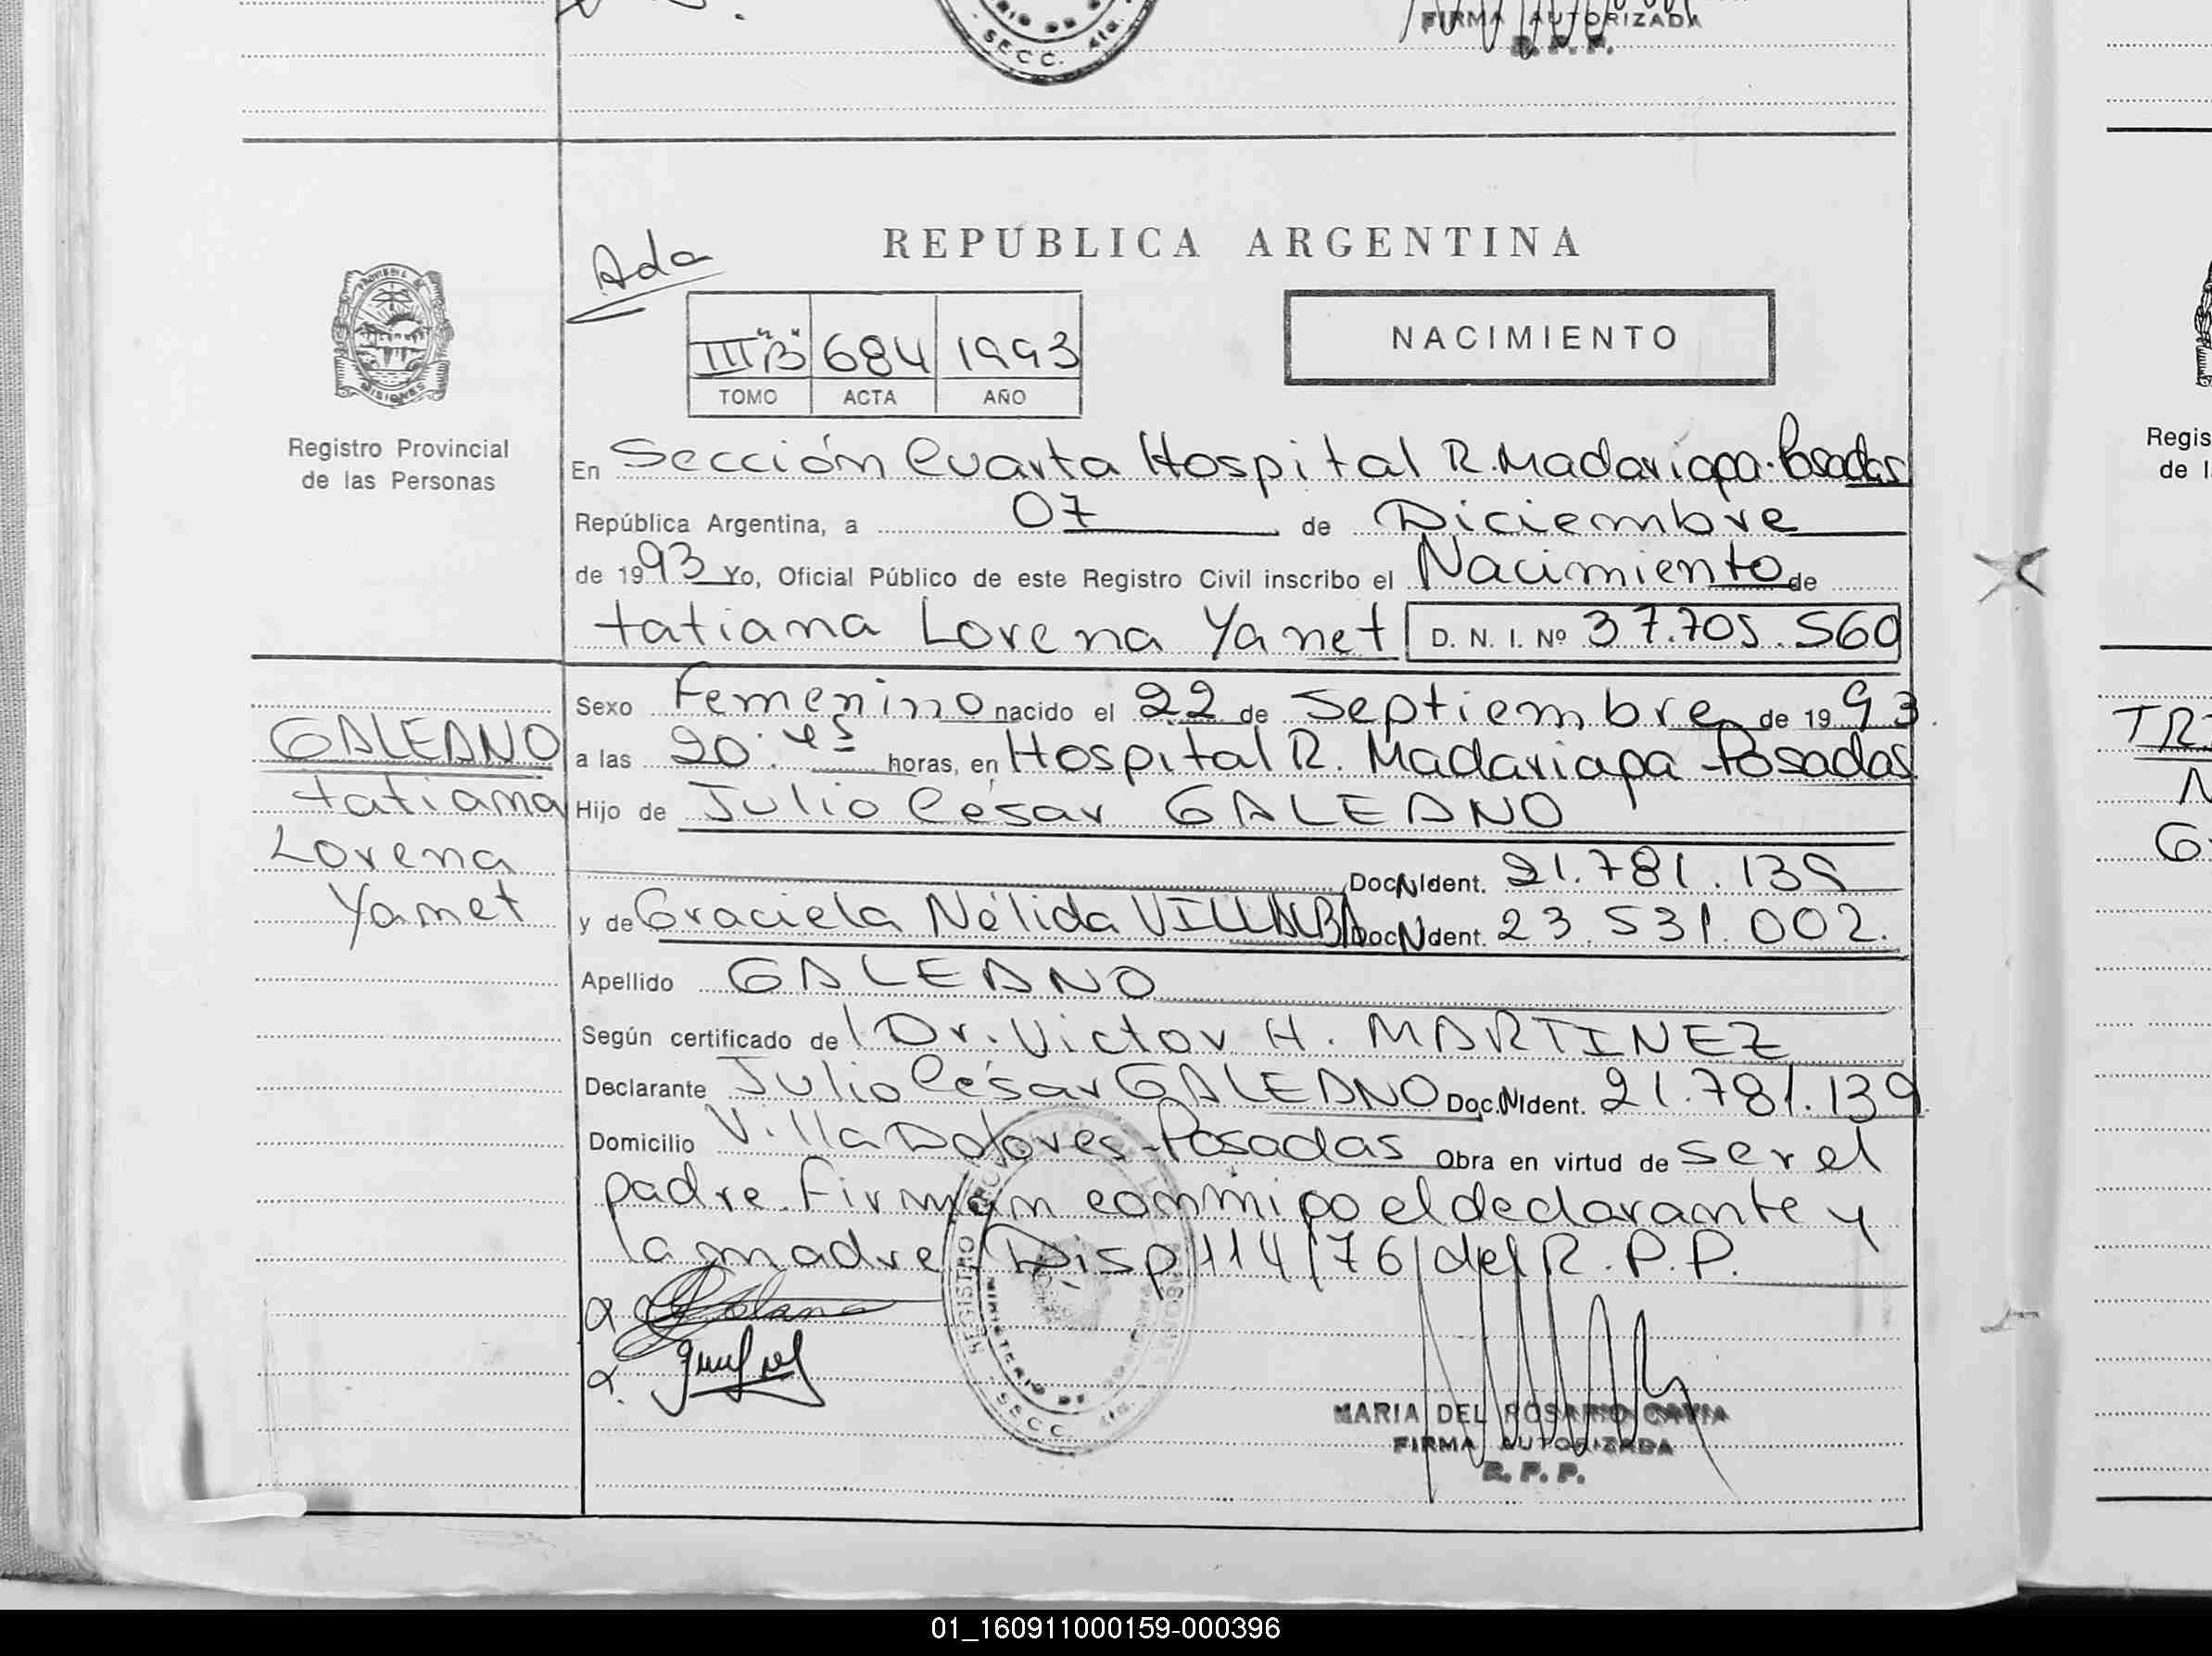 SECC. 4ta.
FIRMA AUTORIZADA
R. P. P.
Ada
REPUBLICA ARGENTINA
III "B" 684 1993
TOMO ACTA AÑO
NACIMIENTO
MISIONES
Registro Provincial
de las Personas
En Sección Cuarta Hospital R. Madariaga. Posadas
República Argentina, a 07 de Diciembre
de 1993 Yo, Oficial Público de este Registro Civil inscribo el Nacimiento de
tatiana Lorena Yanet D. N. I. Nº 37.705.560
Sexo Femenino nacido el 22 de Septiembre de 1993.
a las 20: 45 horas, en Hospital R. Madariaga Posadas
Hijo de Julio César GALEANO
Doc N Ident. 21.781.139
y de Graciela Nélida VILLALBA Doc N Ident. 23.531.002.
Apellido GALEANO
Según certificado de l Dr. Victor H. MARTINEZ
Declarante Julio César GALEANO Doc. N Ident. 21.781.139
Domicilio Villa Dolores-Posadas Obra en virtud de ser el
padre. Firman conmigo el declarante y
la madre Disp 114/76/del R.P.P.
GALEANO
tatiana
Lorena
Yanet
REGISTRO PROVINCIAL
MINISTERIO DE
SECC. 4ta.
MARIA DEL ROSARIO CAVIA
FIRMA AUTORIZADA
R. P. P.
Regis
de l
01_160911000159-000396